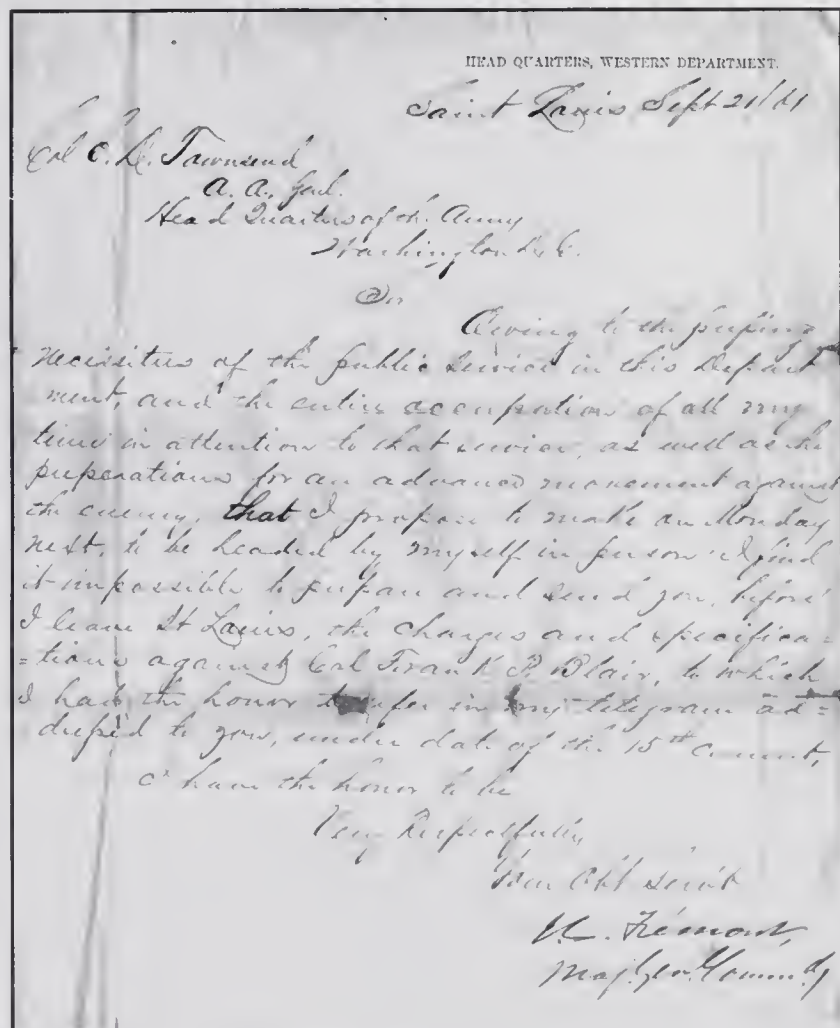 HEAD QUARTERS, WESTERN DEPARTMENT.
Saint Louis Sept 21/61
Col E. D. Townsend
A. A. Genl.
Head Quarters of the Army
Washington D.C.
Sir
Owing to the pressing
necessities of the public service in this Depart
ment, and the entire occupation of all my
time in attention to that service, as well as the
preperations for an advance movement against
the enemy, that I propose to make on Monday
next, to be headed by myself in person I find
it impossible to prepare and send you, before
I leave St Louis, the charges and specifica=
=tions against Col Frank P. Blair, to which
I had the honor to refer in my telegram ad=
dressed to you, under date of the 15th
I have the honor to be
Very Respectfully
Your Obt Servt
J.C. Frémont,
Maj. Gen. Commdg